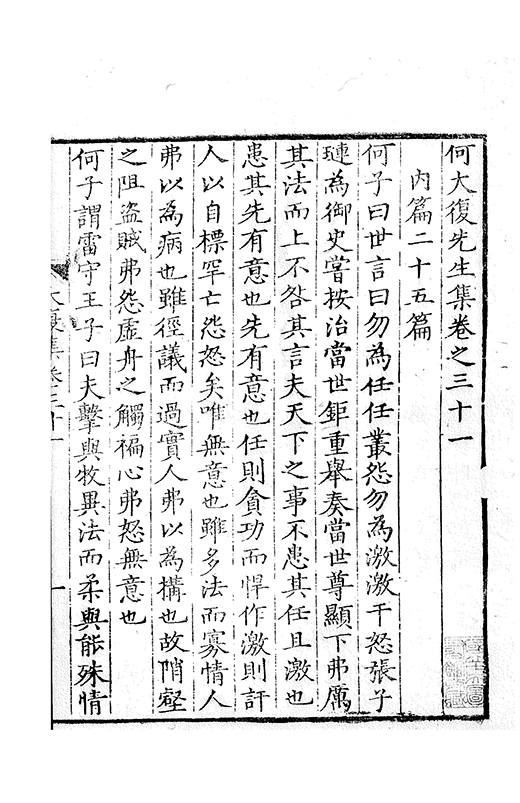 何大復先生集卷之三十一
內篇二十五篇
何子曰世言曰勿為任任叢怨勿為激激干怒張子
璉為御史嘗按治當世鉅重舉奏當世尊顯下弗厲
其法而上不咎其言夫天下之事不患其任且激也
患其先有意也先有意也任則貪功而悍作激則訐
人以自標罕亡怨怒矣唯無意也雖多法而寡情人
弗以為病也雖徑議而過實人弗以為構也故陗壑
之阻盜賊弗怨虛舟之觸褊心弗怒無意也
何子謂雷守王子曰夫擊與牧異法而柔與能殊情
大復集卷三十一
一